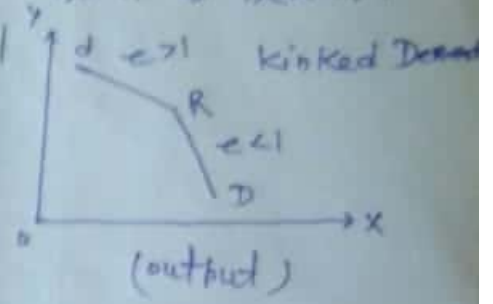 Y
d e>1 kinked Demand
R
e<1
D
0 X
(output)